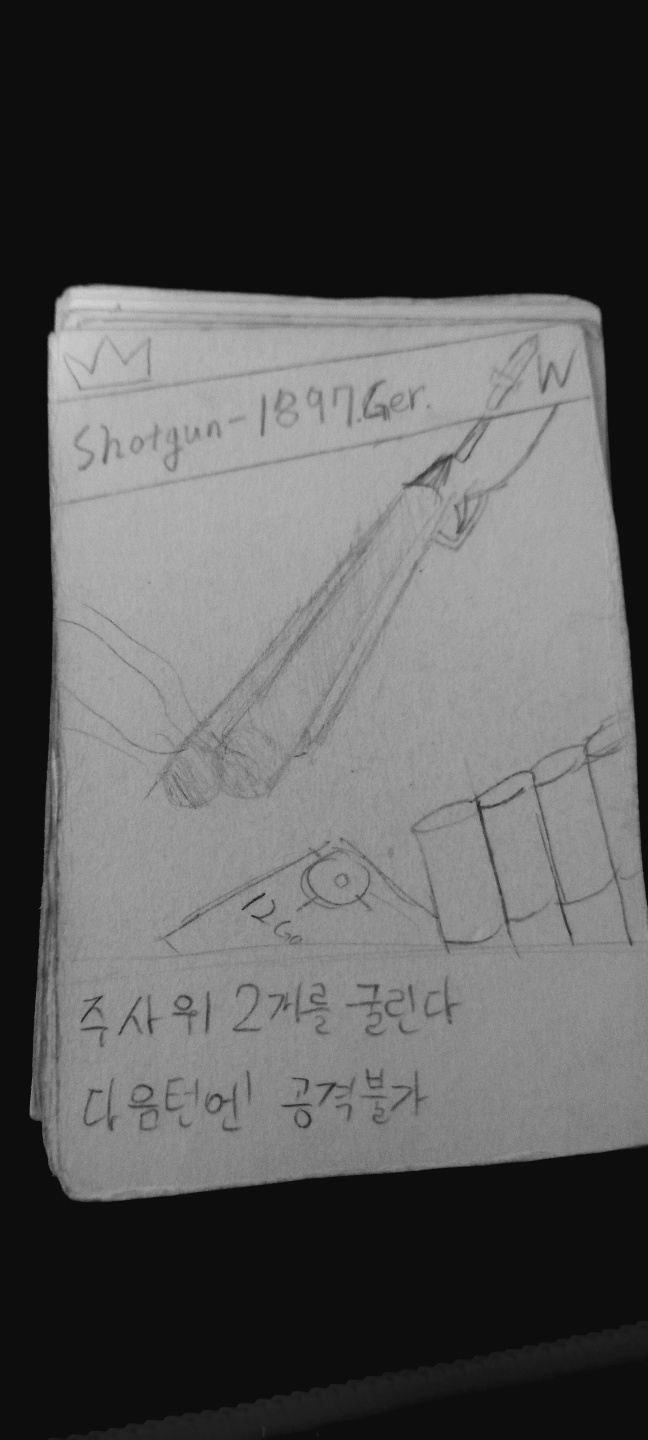 W
Shotgun-1897.Ger.
12Ga
주사위 2개를 굴린다
다음턴엔 공격불가